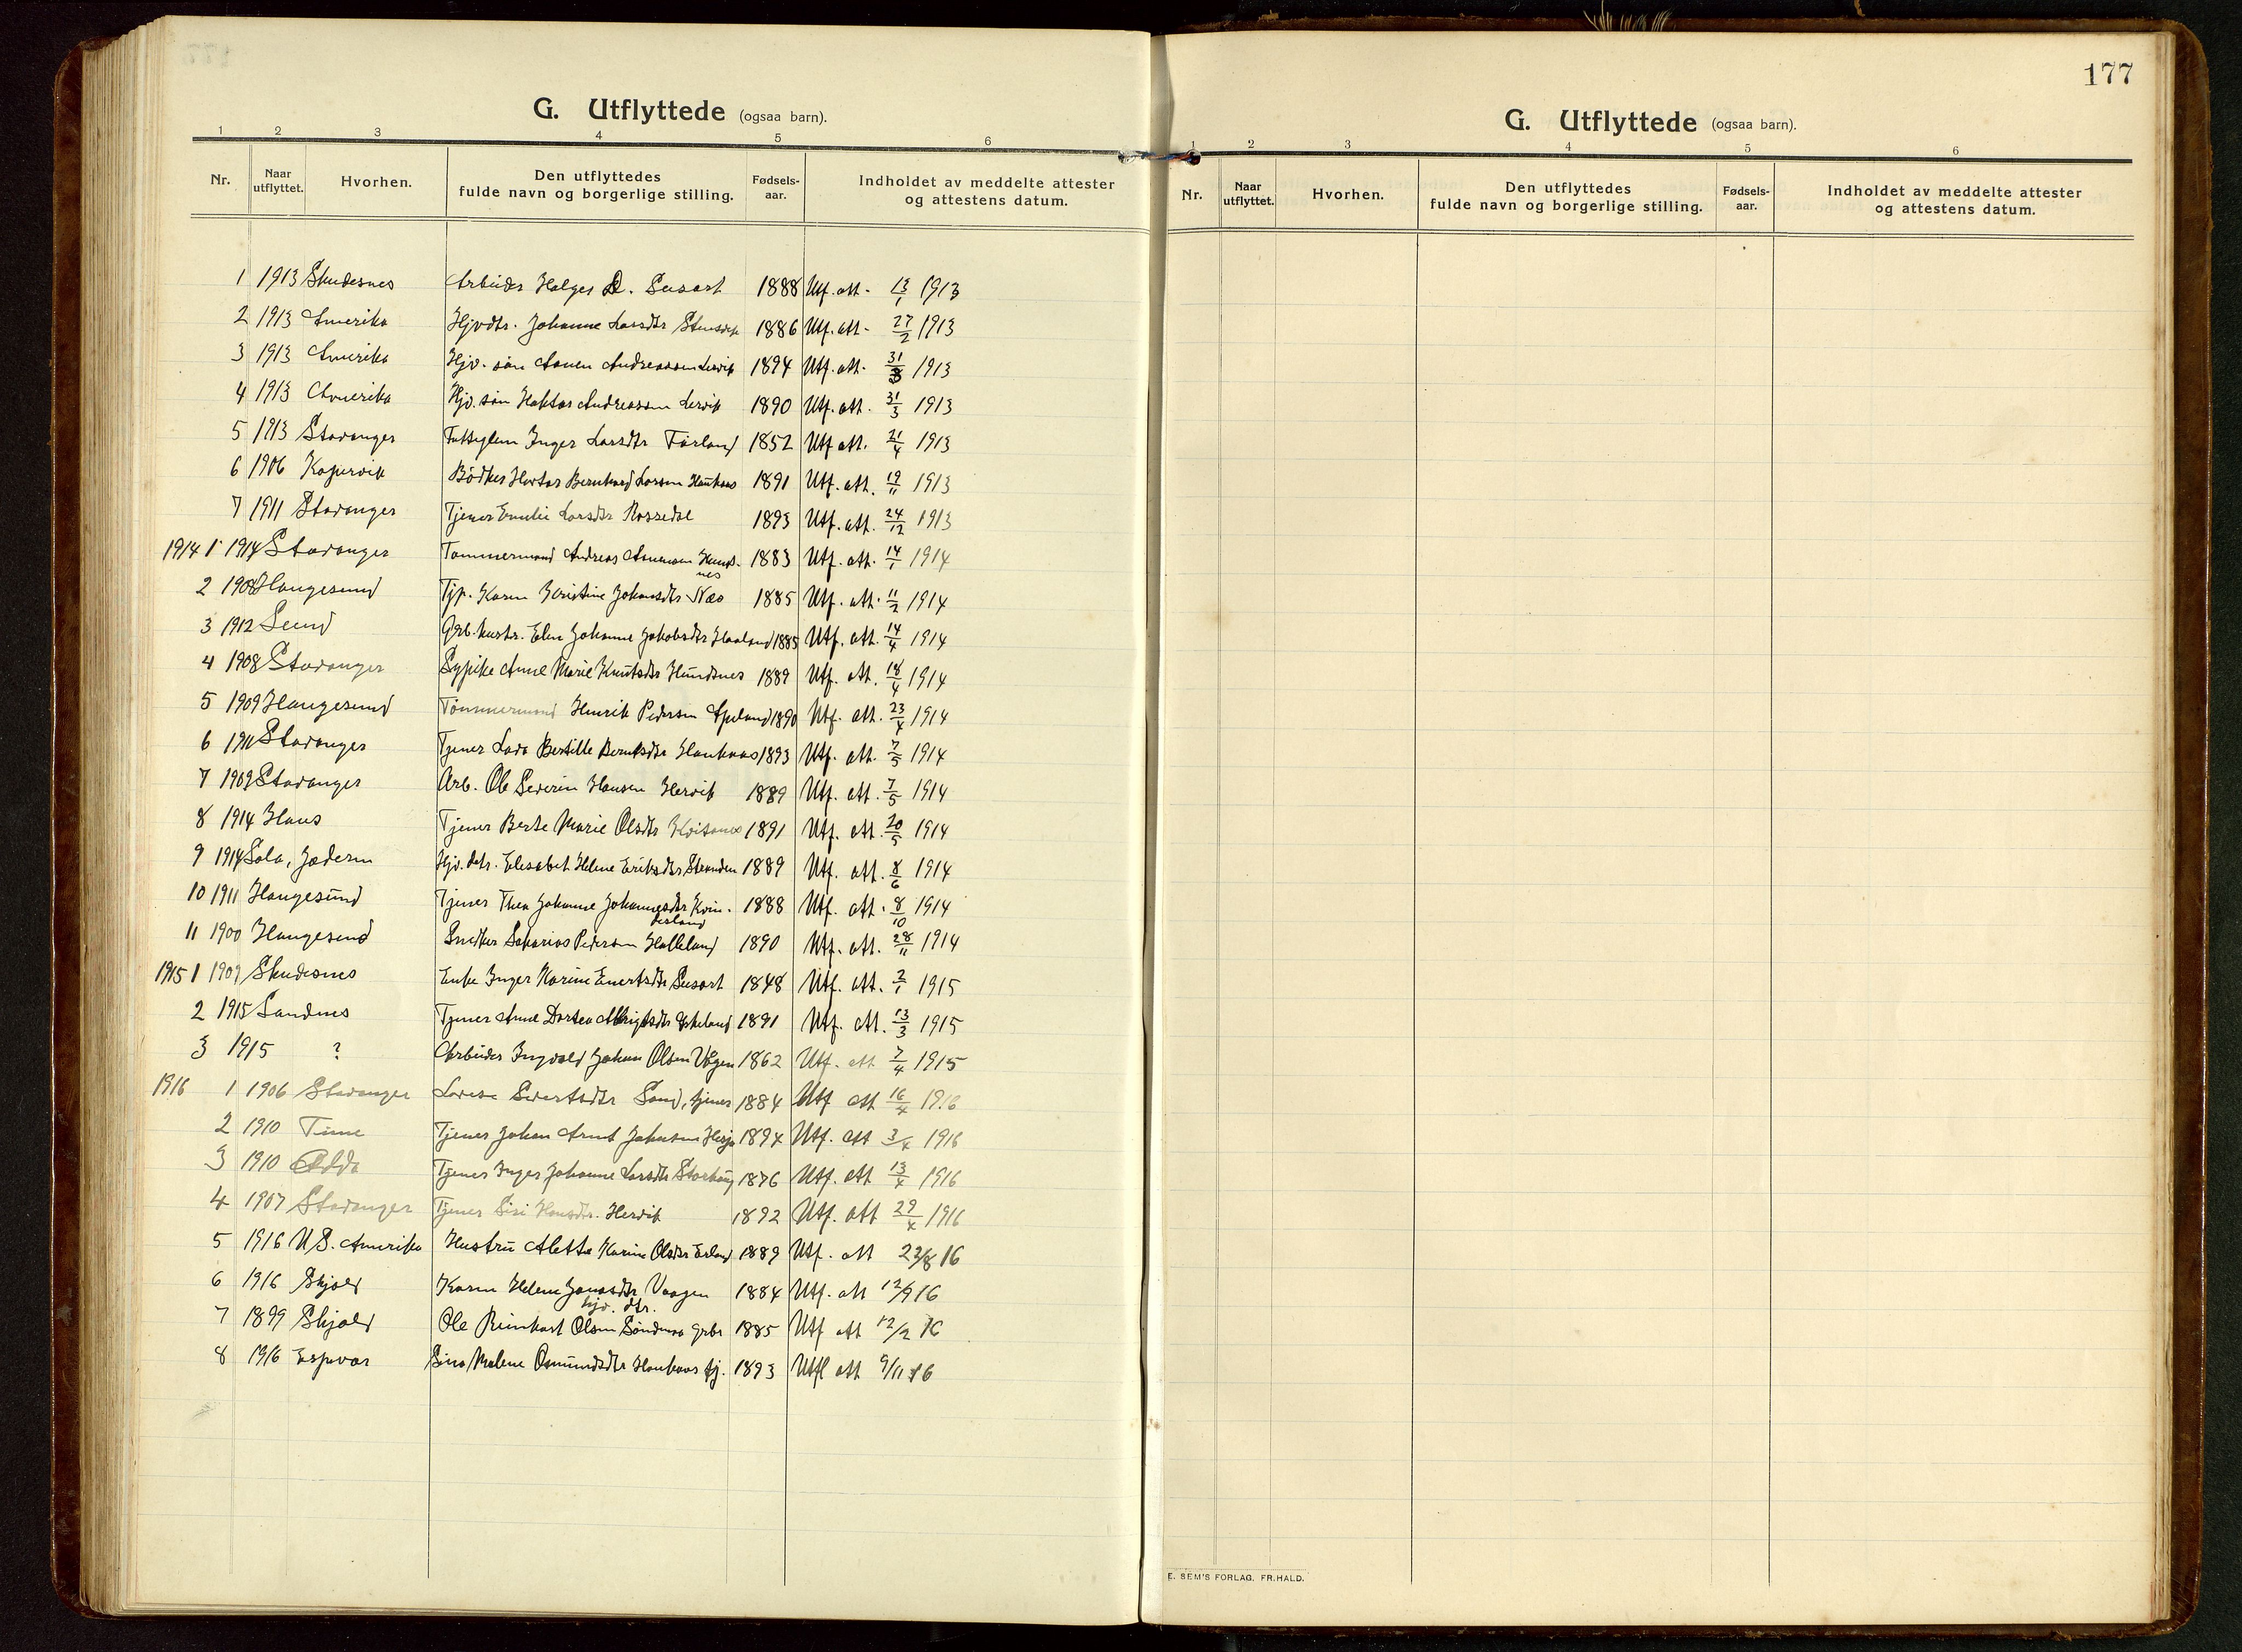 G. Utflyttede (ogsaa barn).
1 2 3 4 5 6
Nr. Naar utflyttet. Hvorhen. Den utflyttedes fulde navn og borgerlige stilling. Fødsels-aar. Indholdet av meddelte attester og attestens datum.
1 1913 Skudesnes Arbeider Holger D. Susort 1888 Utf. att. 13/1 1913
2 1913 Amerika Hjvdtr. Johanne Larsdtr 1886 Utf. att. 27/2 1913
3 1913 Amerika Hjv. søn Andreassen Lervik 1894 Utf. att. 31/3 1913
4 1913 Amerika Hjv. søn Andreassen Lervik 1890 Utf. att. 31/3 1913
5 1913 Stavanger Inger Larsdtr Førland 1852 Utf att. 21/4 1913
6 1906 Kopervik Bødker Bernhard Larsen Haukaas 1891 Utf. att. 19/11 1913
7 1911 Stavanger Tjener Emilie Larsdtr Rossedal 1893 Utf. att. 24/12 1913
1914 1 1914 Stavanger Tømmermand Andreas Hunds-
nes 1883 Utf. att. 14/1 1914
2 1908 Haugesund Tjp. Karen Kristine Johansdtr Næs 1885 Utf. att. 11/2 1914
3 1912 Sund Grb. hustr. Elen Johanne Jakobsdtr Haaland 1885 Utf. att. 14/4 1914
4 1908 Stavanger Sypike Anne Marie Knutsdtr Hundsnes 1889 Utf. att. 18/4 1914
5 1909 Haugesund Tømmermand Henrik Pedersen Apeland 1890 Utf. att. 23/4 1914
6 1911 Stavanger Tjener Bertille Berntsdtr Haukaas 1893 Utf. att. 7/5 1914
7 1909 Stavanger Arb. Ole Severin Hansen Hervik 1889 Utf. att. 7/5 1914
8 1914 Haus Tjener Berte Marie Olsdtr 1891 Utf. att. 20/5 1914
9 1914 Sola, Jæderen Hjv. datr. Elisabet Helene Eriksdtr Stranden 1889 Utf. att. 8/6 1914
10 1911 Haugesund Tjener Thea Johanne Johannesdtr Kvin-
desland 1888 Utf. att. 8/10 1914
11 1900 Haugesund Snedker Sakarias Pedersen Halleland 1890 Utf. att. 28/11 1914
1915 1 1909 Skudesnes Enke Inger Karine Enertsdtr Susort 1848 Utf. att. 2/1 1915
2 1915 Sandnes Tjener Anne Dortea Albrigtsdtr 1891 Utf. att. 13/3 1915
3 1915 ? Arbeider Ingvald Johan Olsen Vågen 1862 Utf. att 7/4 1915
1916 1 1906 Stavanger Lovise Sivertsdtr Sand, tjener 1884 Utf att 16/4 1916
2 1910 Time Tjener Johan Arnt Johansen 1894 Utf. att 3/4 1916
3 1910 Odda Tjener Inger Johanne Larsdtr Storhaug 1876 Utf. att 13/4 1916
4 1907 Stavanger Tjener Siri Hansdtr. Hervik 1892 Utf. att 29/4 1916
5 1916 U.S. Amerika Hustru Aletta Karine Olsdtr Erland 1889 Utf. att 23/8 16
6 1916 Skjold Karen Helene Jonasdtr Vaagen
hjv. dtr. 1884 Utf. att 12/9 16
7 1899 Skjold Ole Reinhart Olsen Søndenaa grbr 1885 Utf att 12/2 16
8 1916 Espevær Sina Malene Osmundsdtr Haukaas tj. 1893 Utfl att 9/11 16
177
G. Utflyttede (ogsaa barn).
1 2 3 4 5 6
Nr. Naar utflyttet. Hvorhen. Den utflyttedes fulde navn og borgerlige stilling. Fødsels-aar. Indholdet av meddelte attester og attestens datum.
E. SEM'S FORLAG. FR.HALD.